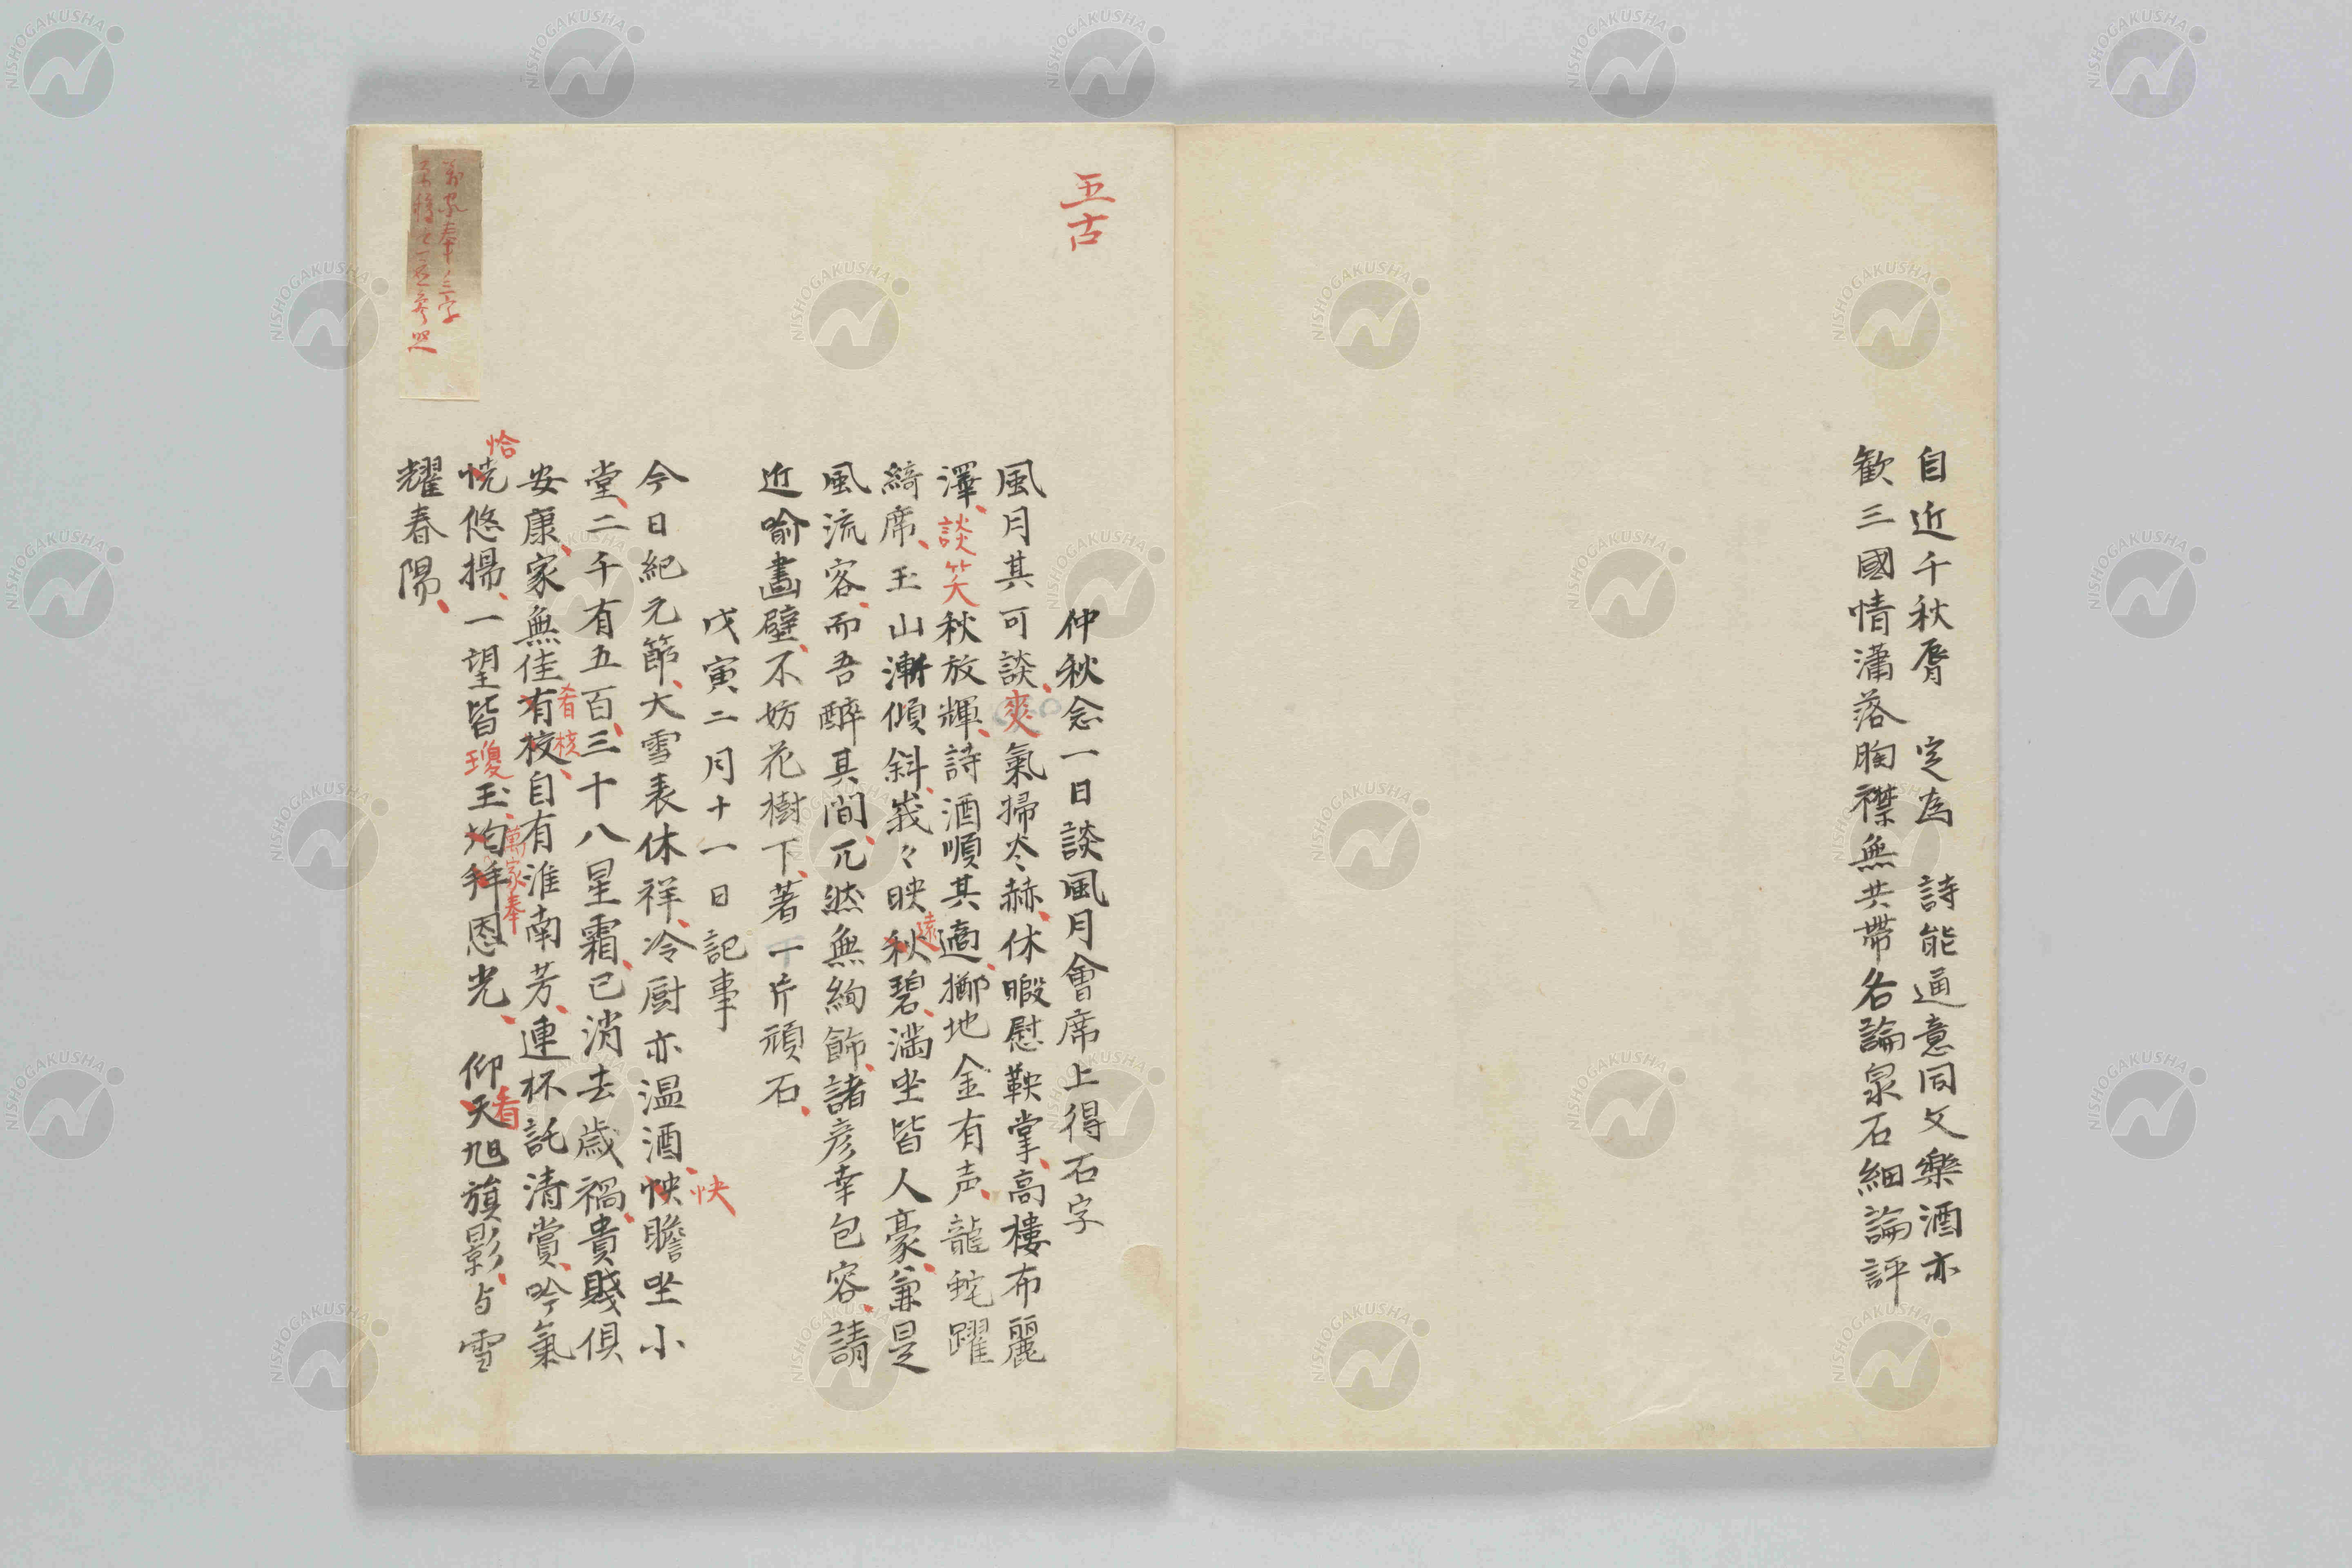 自近千秋脣　定為　詩能通意同文樂酒亦
歓三國情瀟落胸襟無共帶各論泉石細論評
五古
仲秋念一日談風月會席上得石字
風月其可談爽氣掃炎赫休暇慰鞅掌高樓布麗
澤談笑秋放輝詩酒順其適擲地金有声龍蛇躍
綺席玉山漸傾斜峩々映秋碧満坐皆人豪兼是
遠
風流客而吾醉其間兀然無絢飾諸彦幸包容請
近喻畫壁不妨花樹下著一片頑石
戊寅二月十一日記事
今日紀元節大雪表休祥冷厨亦温酒怏瞻坐小
快
堂二千有五百三十八星霜已消去歳禍貴賤俱
安康家無佳有核自有淮南芳連杯託清賞吟氣
肴核
恍悠揚一望皆瓊玉均拜恩光　仰天旭旗影与雪
恰
萬家奉
看
耀春陽
萬家奉ノ三字
NISHOGAKUSHA